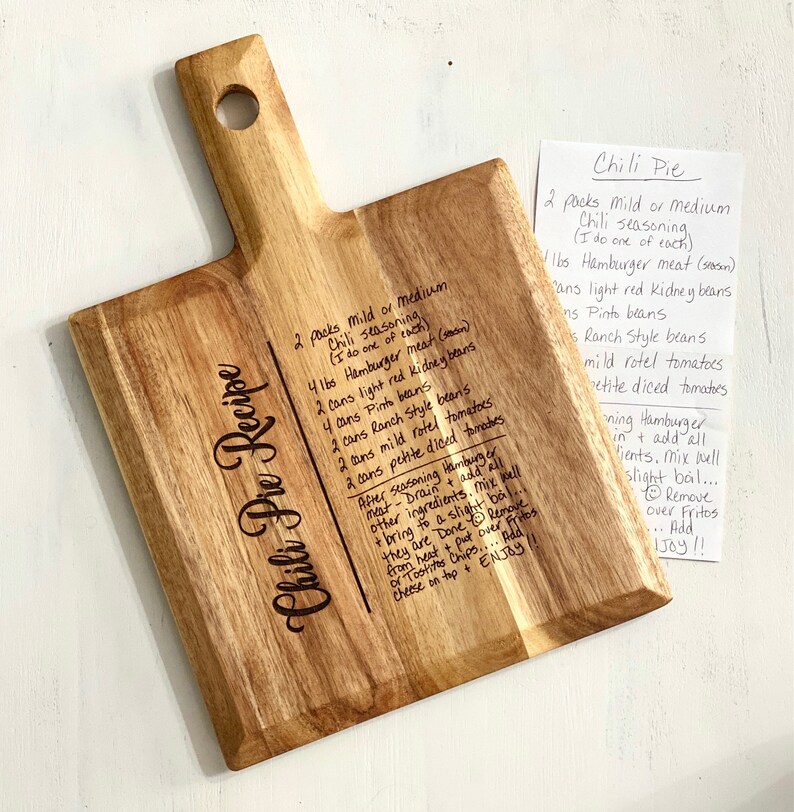 Chili Pie Recipe
2 packs mild or medium
Chili seasoning
(I do one of each)
4 lbs Hamburger meat (season)
2 cans light red Kidney beans
4 cans Pinto beans
2 cans Ranch Style beans
2 cans mild rotel tomatoes
2 cans petite diced tomatoes
After seasoning Hamburger
meat - Drain + add all
other ingredients. Mix well
+ bring to a slight boil...
they are Done ☺ Remove
from heat + put over Fritos
or Tostitos Chips..... Add
cheese on top + ENJOY!!
Chili Pie
2 packs mild or medium
Chili seasoning
(I do one of each)
4 lbs Hamburger meat (season)
cans light red Kidney beans
ns Pinto beans
s Ranch Style beans
mild rotel tomatoes
petite diced tomatoes
oning Hamburger
in + add all
dients. Mix well
slight boil...
☺ Remove
over Fritos
... Add
NJOY!!